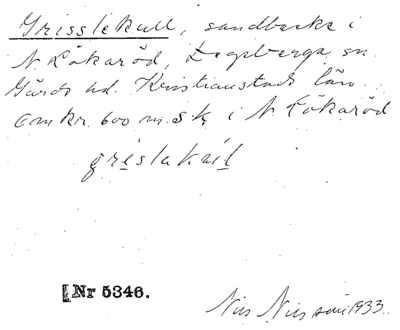 Grisslekull, sandbacke i
N. Lökaröd, Degeberga sn.
Gärds hd. Kristianstads län.
Omkr. 600 m. s k i N. Lökaröd
grislakul
[Nr 5346.
Nils Nilsson 1933.